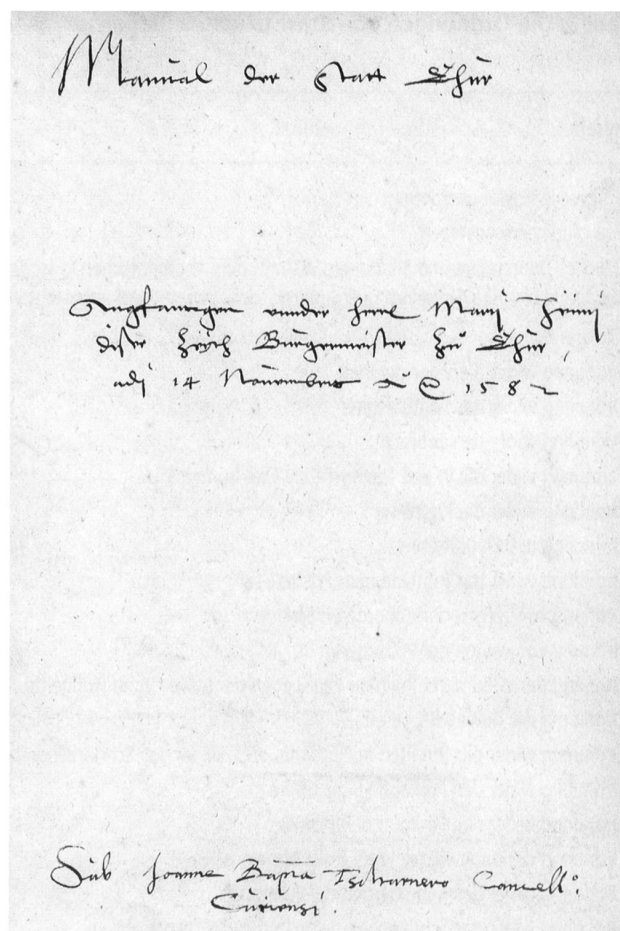 Manual der Statt Chur
Angfangen vnnder Herrn Marij Jenni
diser Zytt Burgermeister Zu Chur,
adj 14 Nouembris 1582
Sub Joanne Bapta Tscharnero Cancello.
Curiensi.